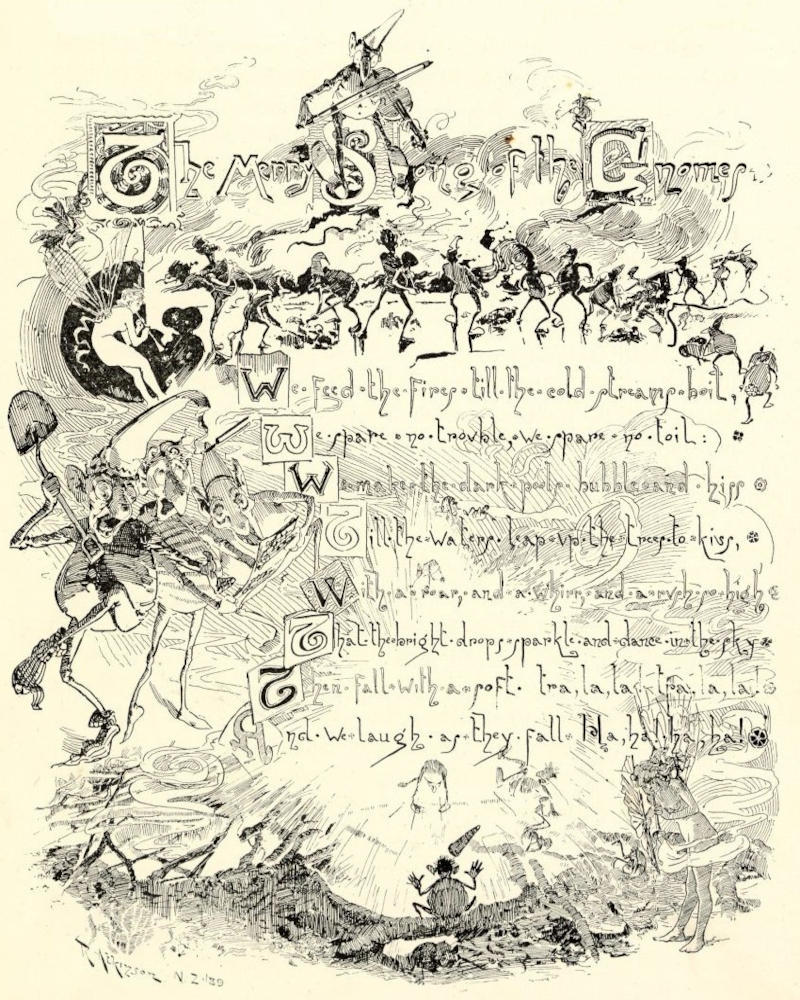 The Merry Song of the Gnomes.
We feed the fires till the cold streams boil,
We spare no trouble, we spare no toil:
We make the dark pools bubble and hiss
Till the waters leap up the trees to kiss,
With a roar, and a whirr, and a rush so high
That the bright drops sparkle and dance in the sky
Then fall with a soft tra, la, la, tra, la, la!
And we laugh as they fall Ha, ha! ha, ha!
N.Z. 89